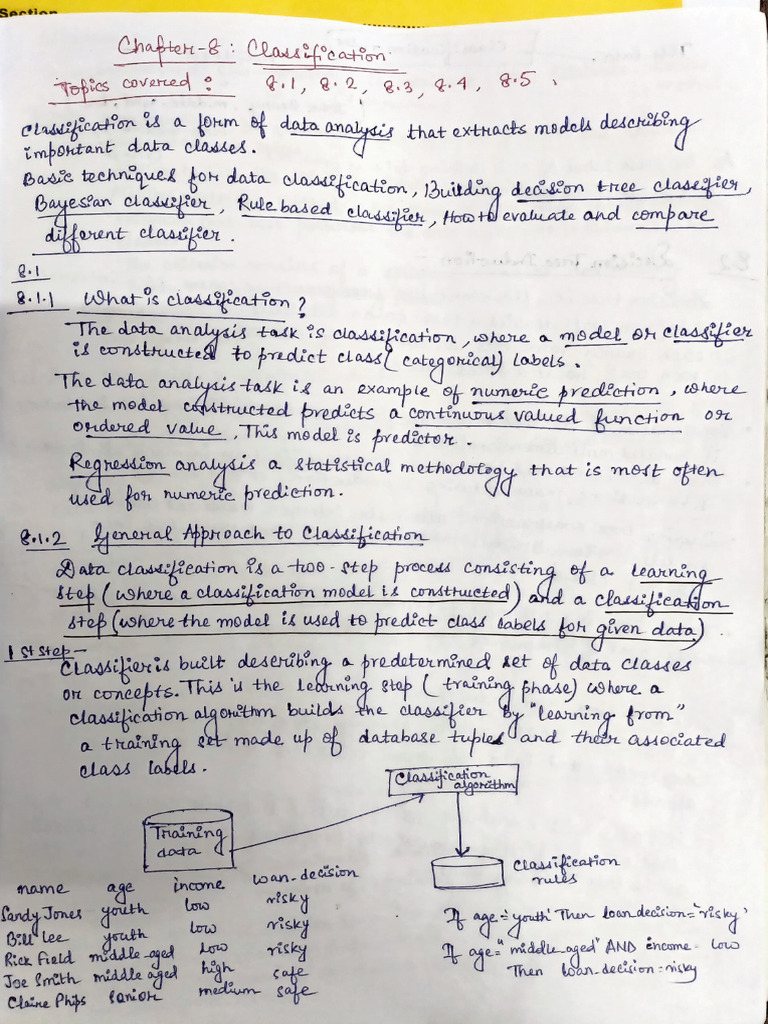 Section
Chapter-8: Classification
Topics covered: 8.1, 8.2, 8.3, 8.4, 8.5,
Classification is a form of data analysis that extracts models describing
important data classes.
Basic techniques for data classification, Building decision tree classifier,
Bayesian classifier, Rule based classifier, How to evaluate and compare
different classifier.
8.1
8.1.1 What is classification?
The data analysis task is classification, where a model or classifier
is constructed to predict class (categorical) labels.
The data analysis task is an example of numeric prediction, where
the model constructed predicts a continuous valued function or
ordered value, This model is predictor.
Regression analysis a statistical methodology that is most often
used for numeric prediction.
8.1.2 General Approach to Classification
Data classification is a two-step process consisting of a learning
step (where a classification model is constructed) and a classification
step (where the model is used to predict class labels for given data)
1st step –
Classifier is built describing a predetermined set of data classes
or concepts. This is the learning step (training phase) where a
classification algorithm builds the classifier by "learning from"
a training set made up of database tuples and their associated
class labels.
Classification
algorithm
Training
data
Classification
rules
name age income loan-decision
Sandy Jones youth low risky
Bill Lee youth low risky
Rick Field middle-aged low risky
Joe Smith middle aged high safe
Claire Phips senior medium safe
If age='youth' Then loan decision="risky'
If age="middle-aged" AND income = low
Then loan-decision=risky